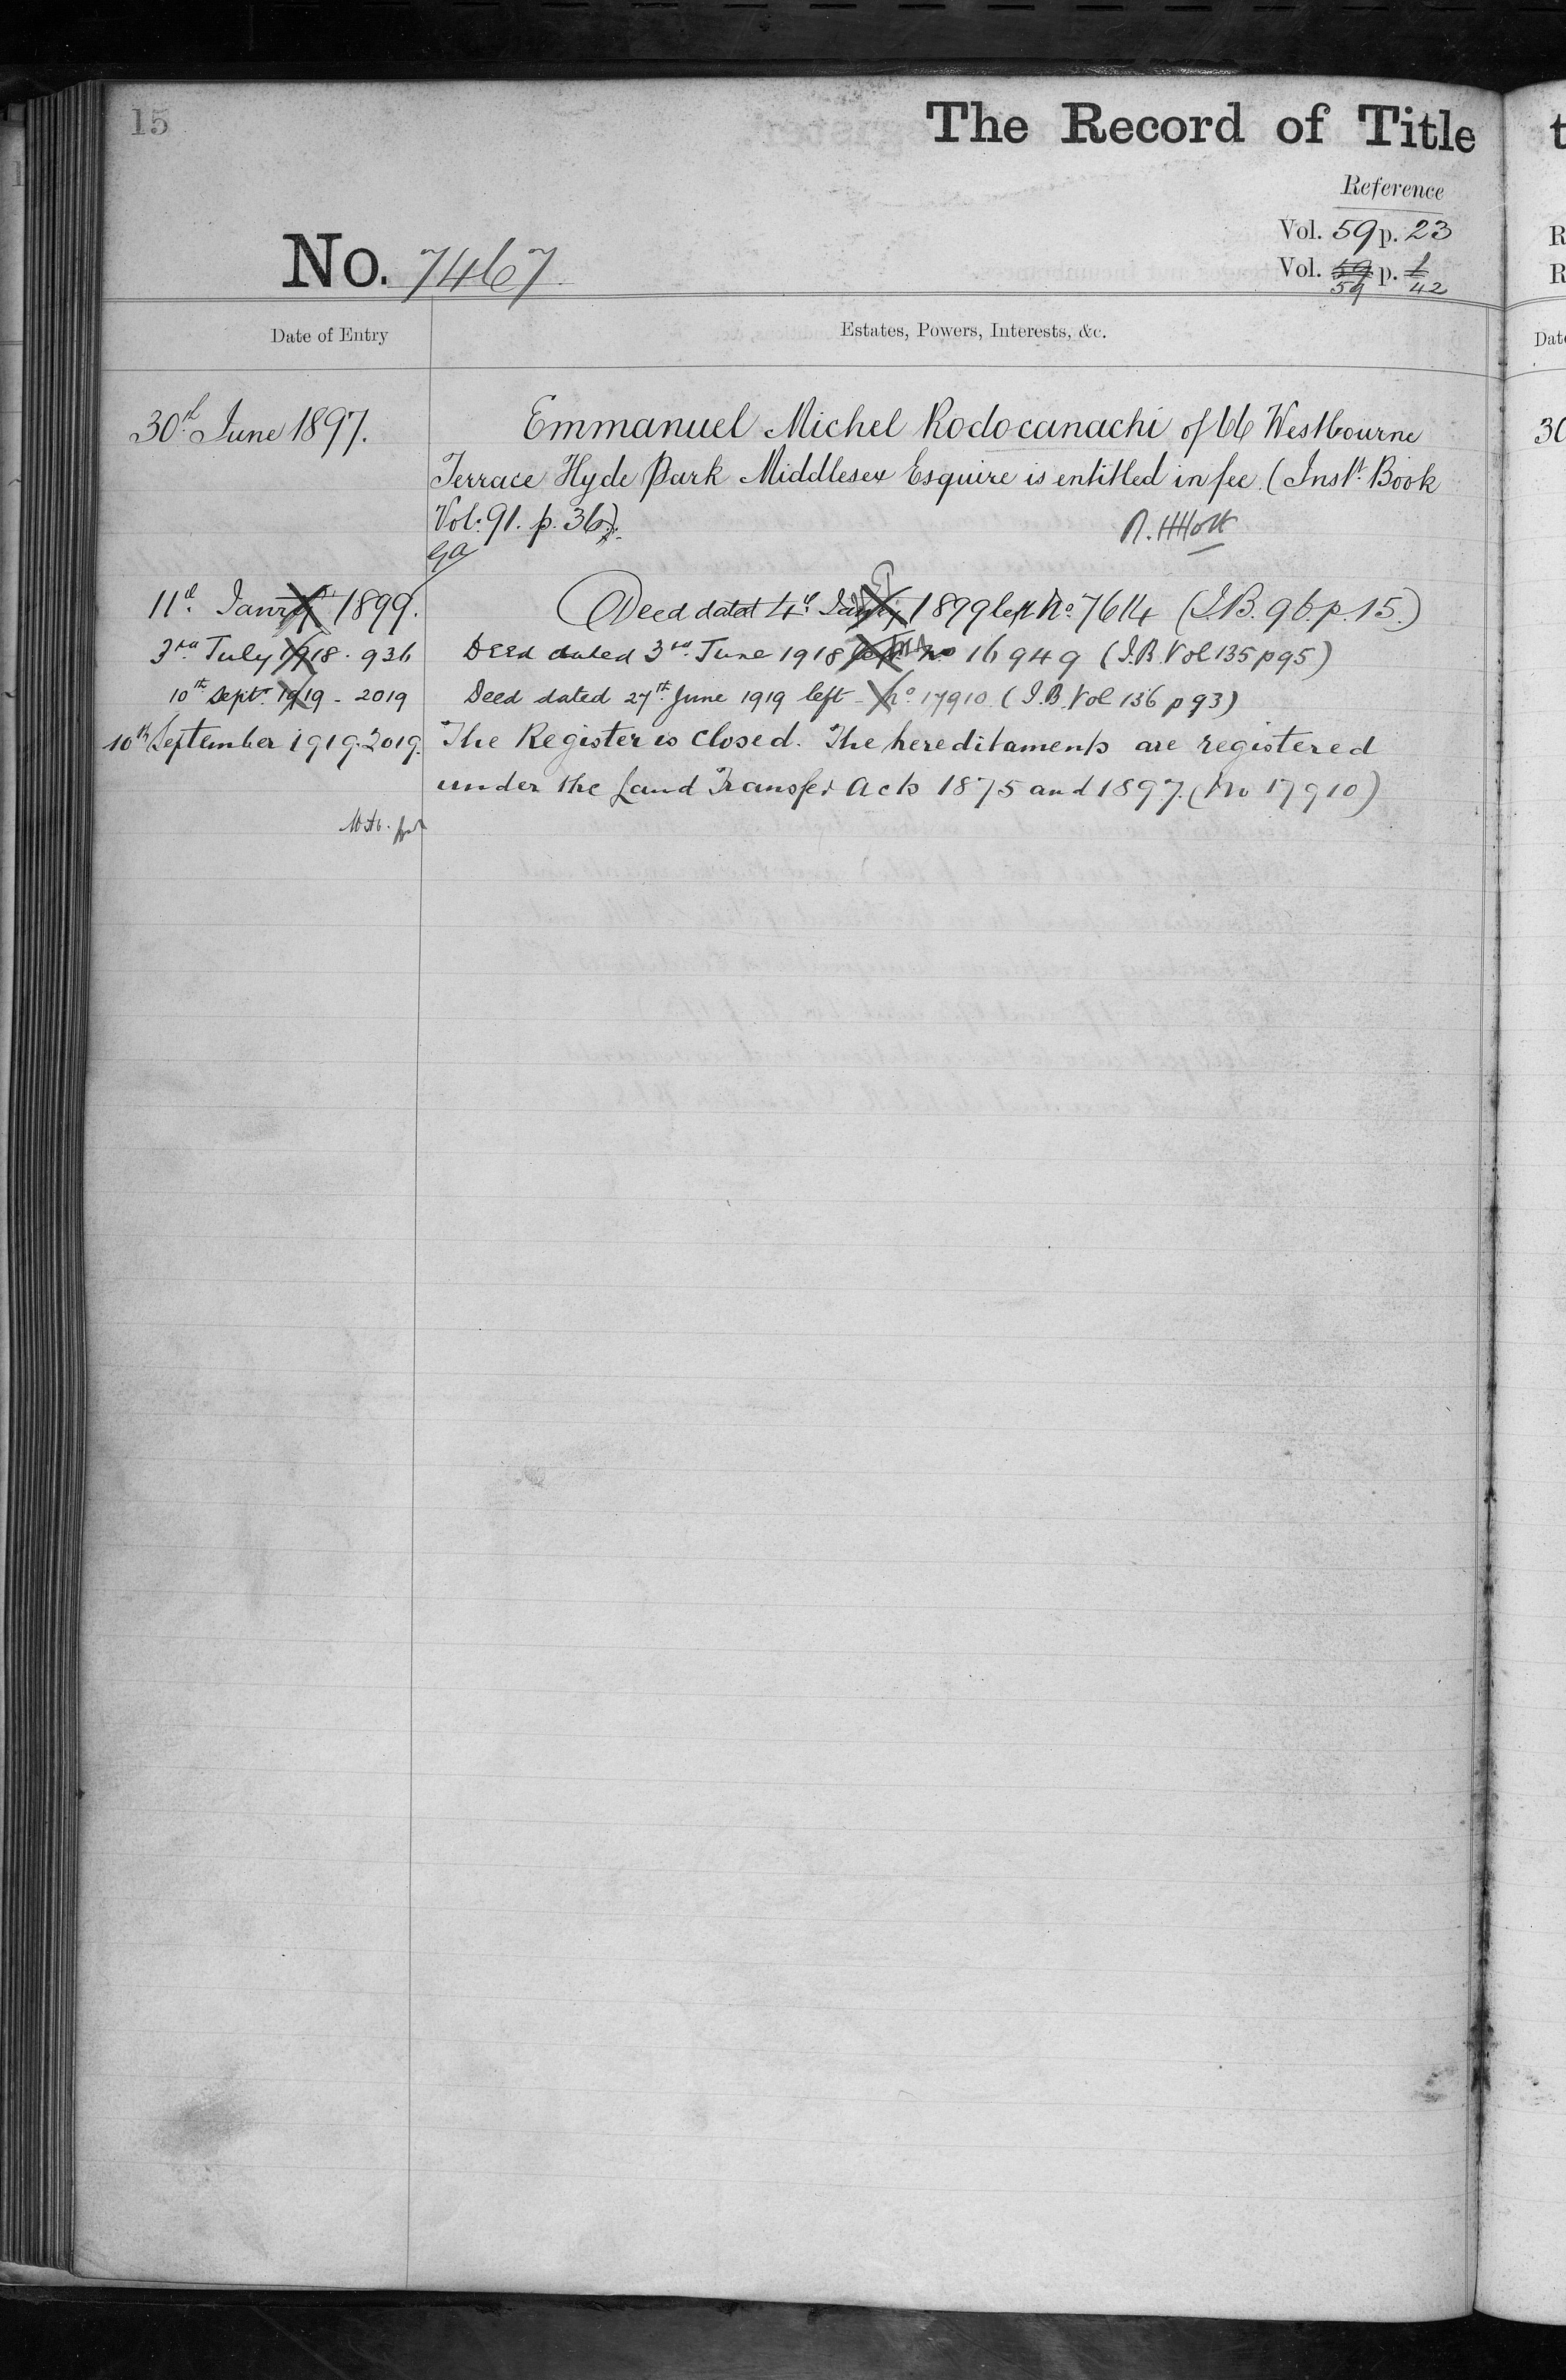 15
The Record of Title
Reference
Vol. 59 p. 23
No. 7467
Vol. 59 p. 1
59 42
Date of Entry
Estates, Powers, Interests, &c.
30th June 1897.
Emmanuel Michel Rodocanachi of 66 Westbourne
Terrace Hyde Park Middlesex Esquire is entitled in fee (Inst. Book
Vol: 91. p. 36).
11th Janry 1899.
Deed dated 4th Jany 1899 left No. 7614 (I.B. 96. p. 15.)
3rd July 1918. 936
Deed dated 3rd June 1918 left No 16949 (I.B. Vol 135 p 95)
10th Sept. 1919 - 2019
Deed dated 27th June 1919 left - No. 17910. (I.B. Vol 136 p 93)
10th September 1919. 2019.
The Register is closed. The hereditaments are registered
under the Land Transfer Acts 1875 and 1897. (No 17910)
t
R
R
Date
30